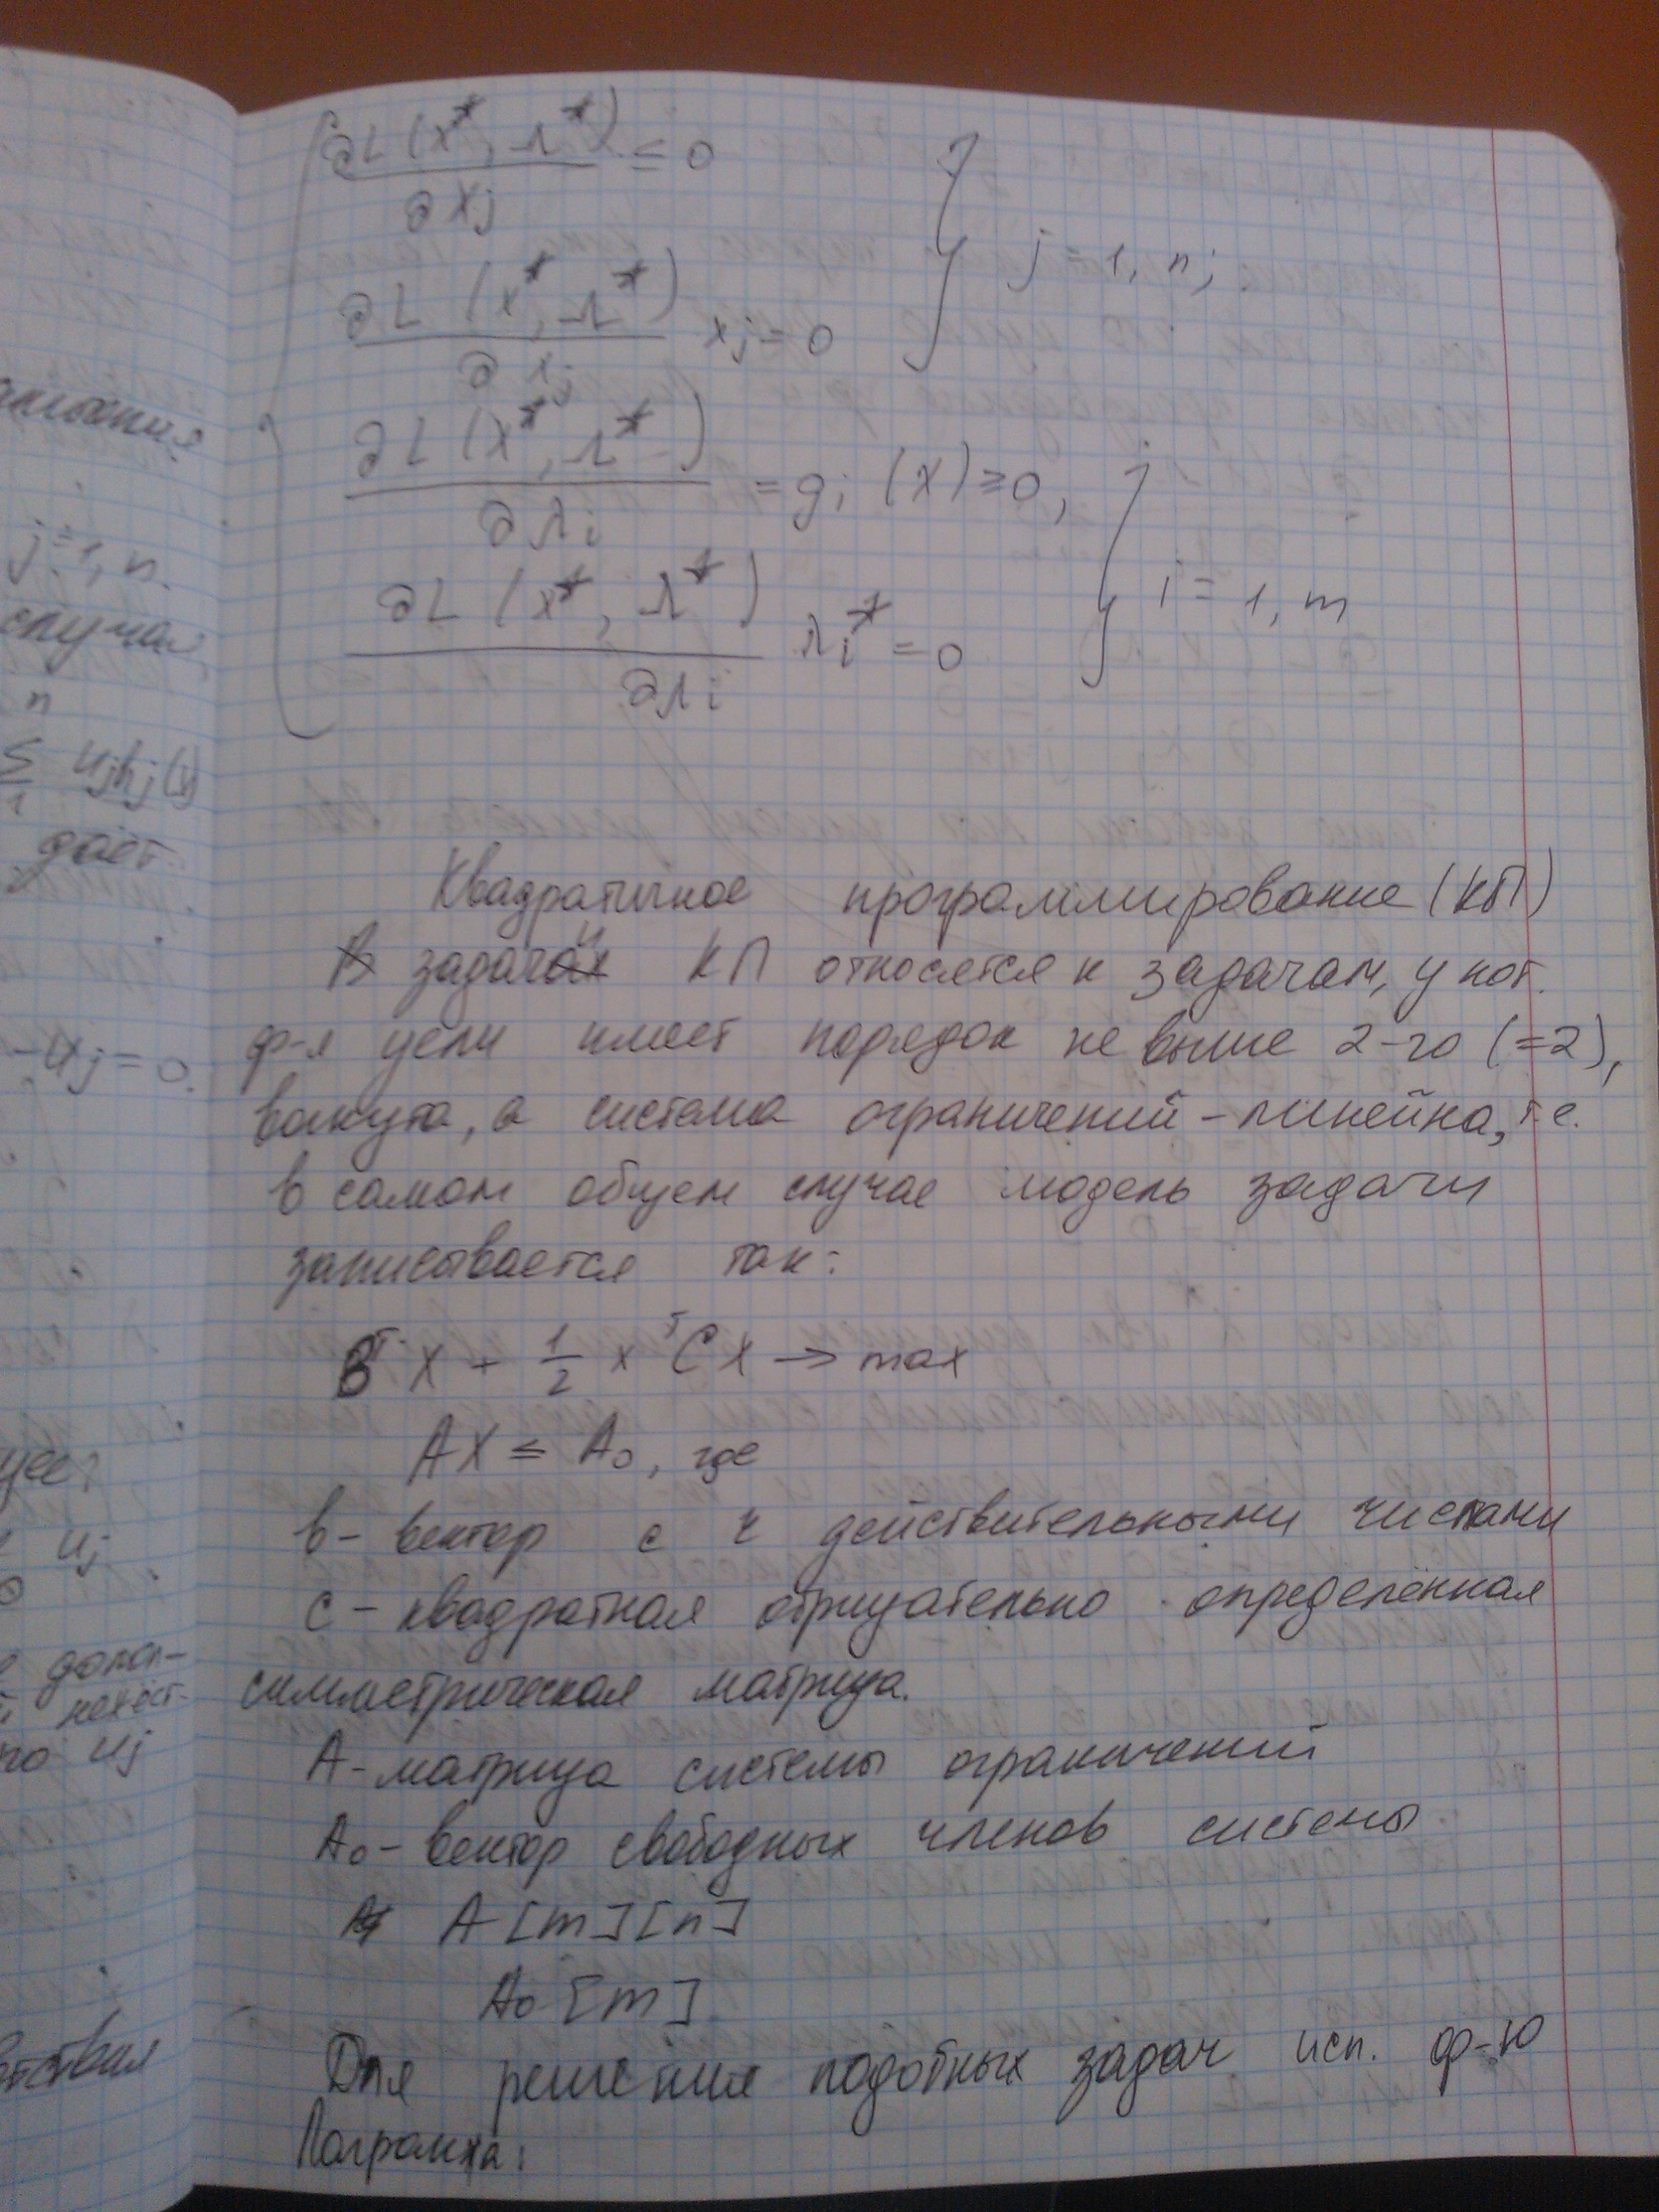 амания
j=1, n.
случая
n
Σ ujhj(x)
1
дает
-uj=0.
uj
допол-
uj
∂L(x*, λ*)/∂xj ≤ 0
∂L(x*, λ*)/∂xj xj=0 } j=1, n;
∂L(x*, λ*)/∂λi = gi(x)≥0,
∂L(x*, λ*)/∂λi λi*=0 } i=1, m
Квадратичное программирование (КП)
В задачи КП относятся к задачам, у кот.
ф-я цели имеет порядок не выше 2-го (=2),
вогнута, а система ограничений - линейна, т.е.
в самом общем случае модель задачи
записывается так:
Bᵀ X + 1/2 xᵀCX → max
AX ≤ A₀, где
в - вектор с действительными числами
C - квадратная отрицательно определённая
симметрическая матрица.
A - матрица системы ограничений
A₀ - вектор свободных членов системы
A[m][n]
A₀[m]
Для решения подобных задач исп. ф-ю
Лагранжа: